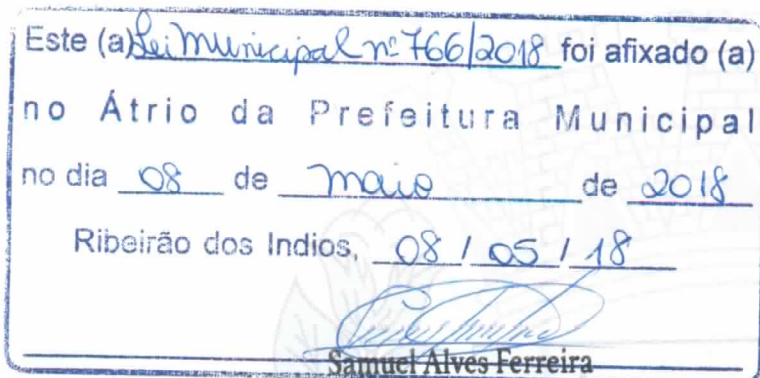 Este (a) Lei Municipal nº 766/2018 foi afixado (a)
no Átrio da Prefeitura Municipal
no dia 08 de maio de 2018
Ribeirão dos Indios, 08 / 05 / 18
Samuel Alves Ferreira